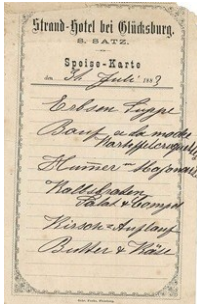 Strand-Hotel bei Glücksburg.
S. SATZ.
Speise-Karte
den Juli 1883
Erbsen Suppe
Bœuf a la mode
Kartoffelcroquett
Hummer Majonaise
Kalbsbraten
Salat & Compot
Kirsch-Auflauf
Butter & Käse